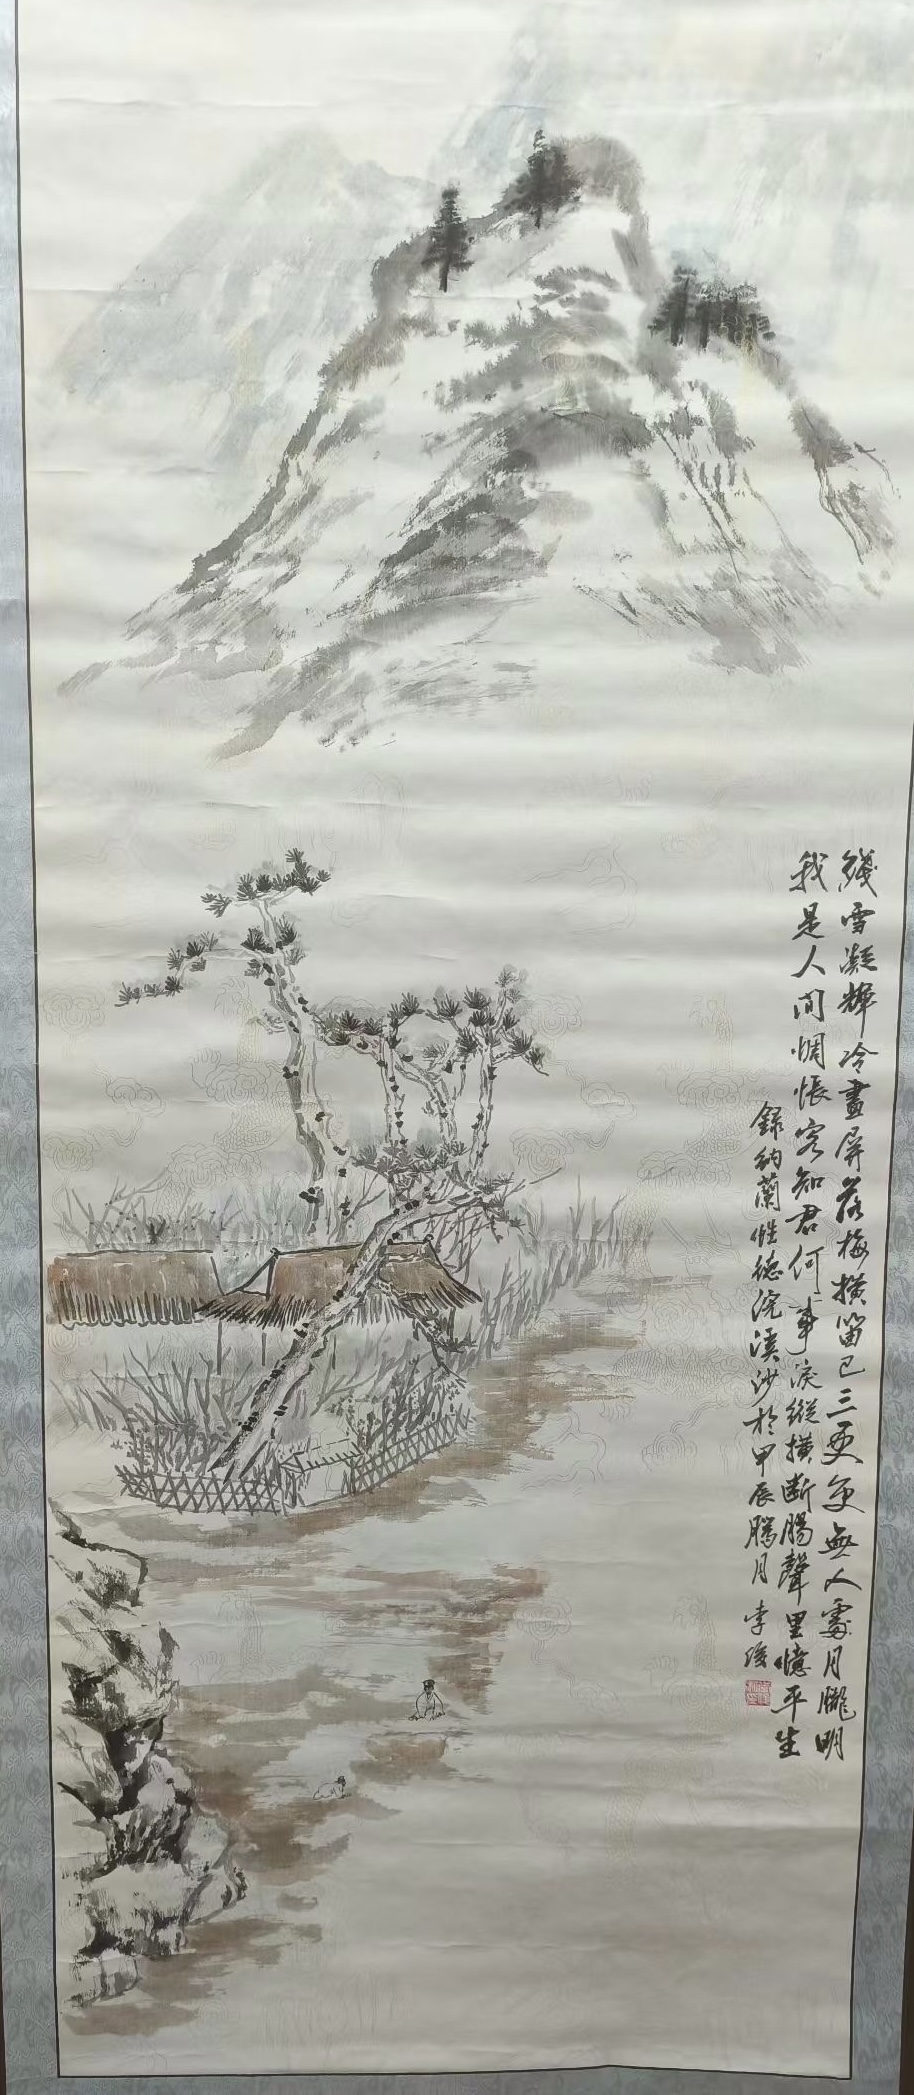 殘雪凝輝冷畫屏落梅橫笛已三更更無人處月朧明
我是人間惆悵客知君何事淚縱橫斷腸聲里憶平生
錄納蘭性德浣溪沙於甲辰臘月 李